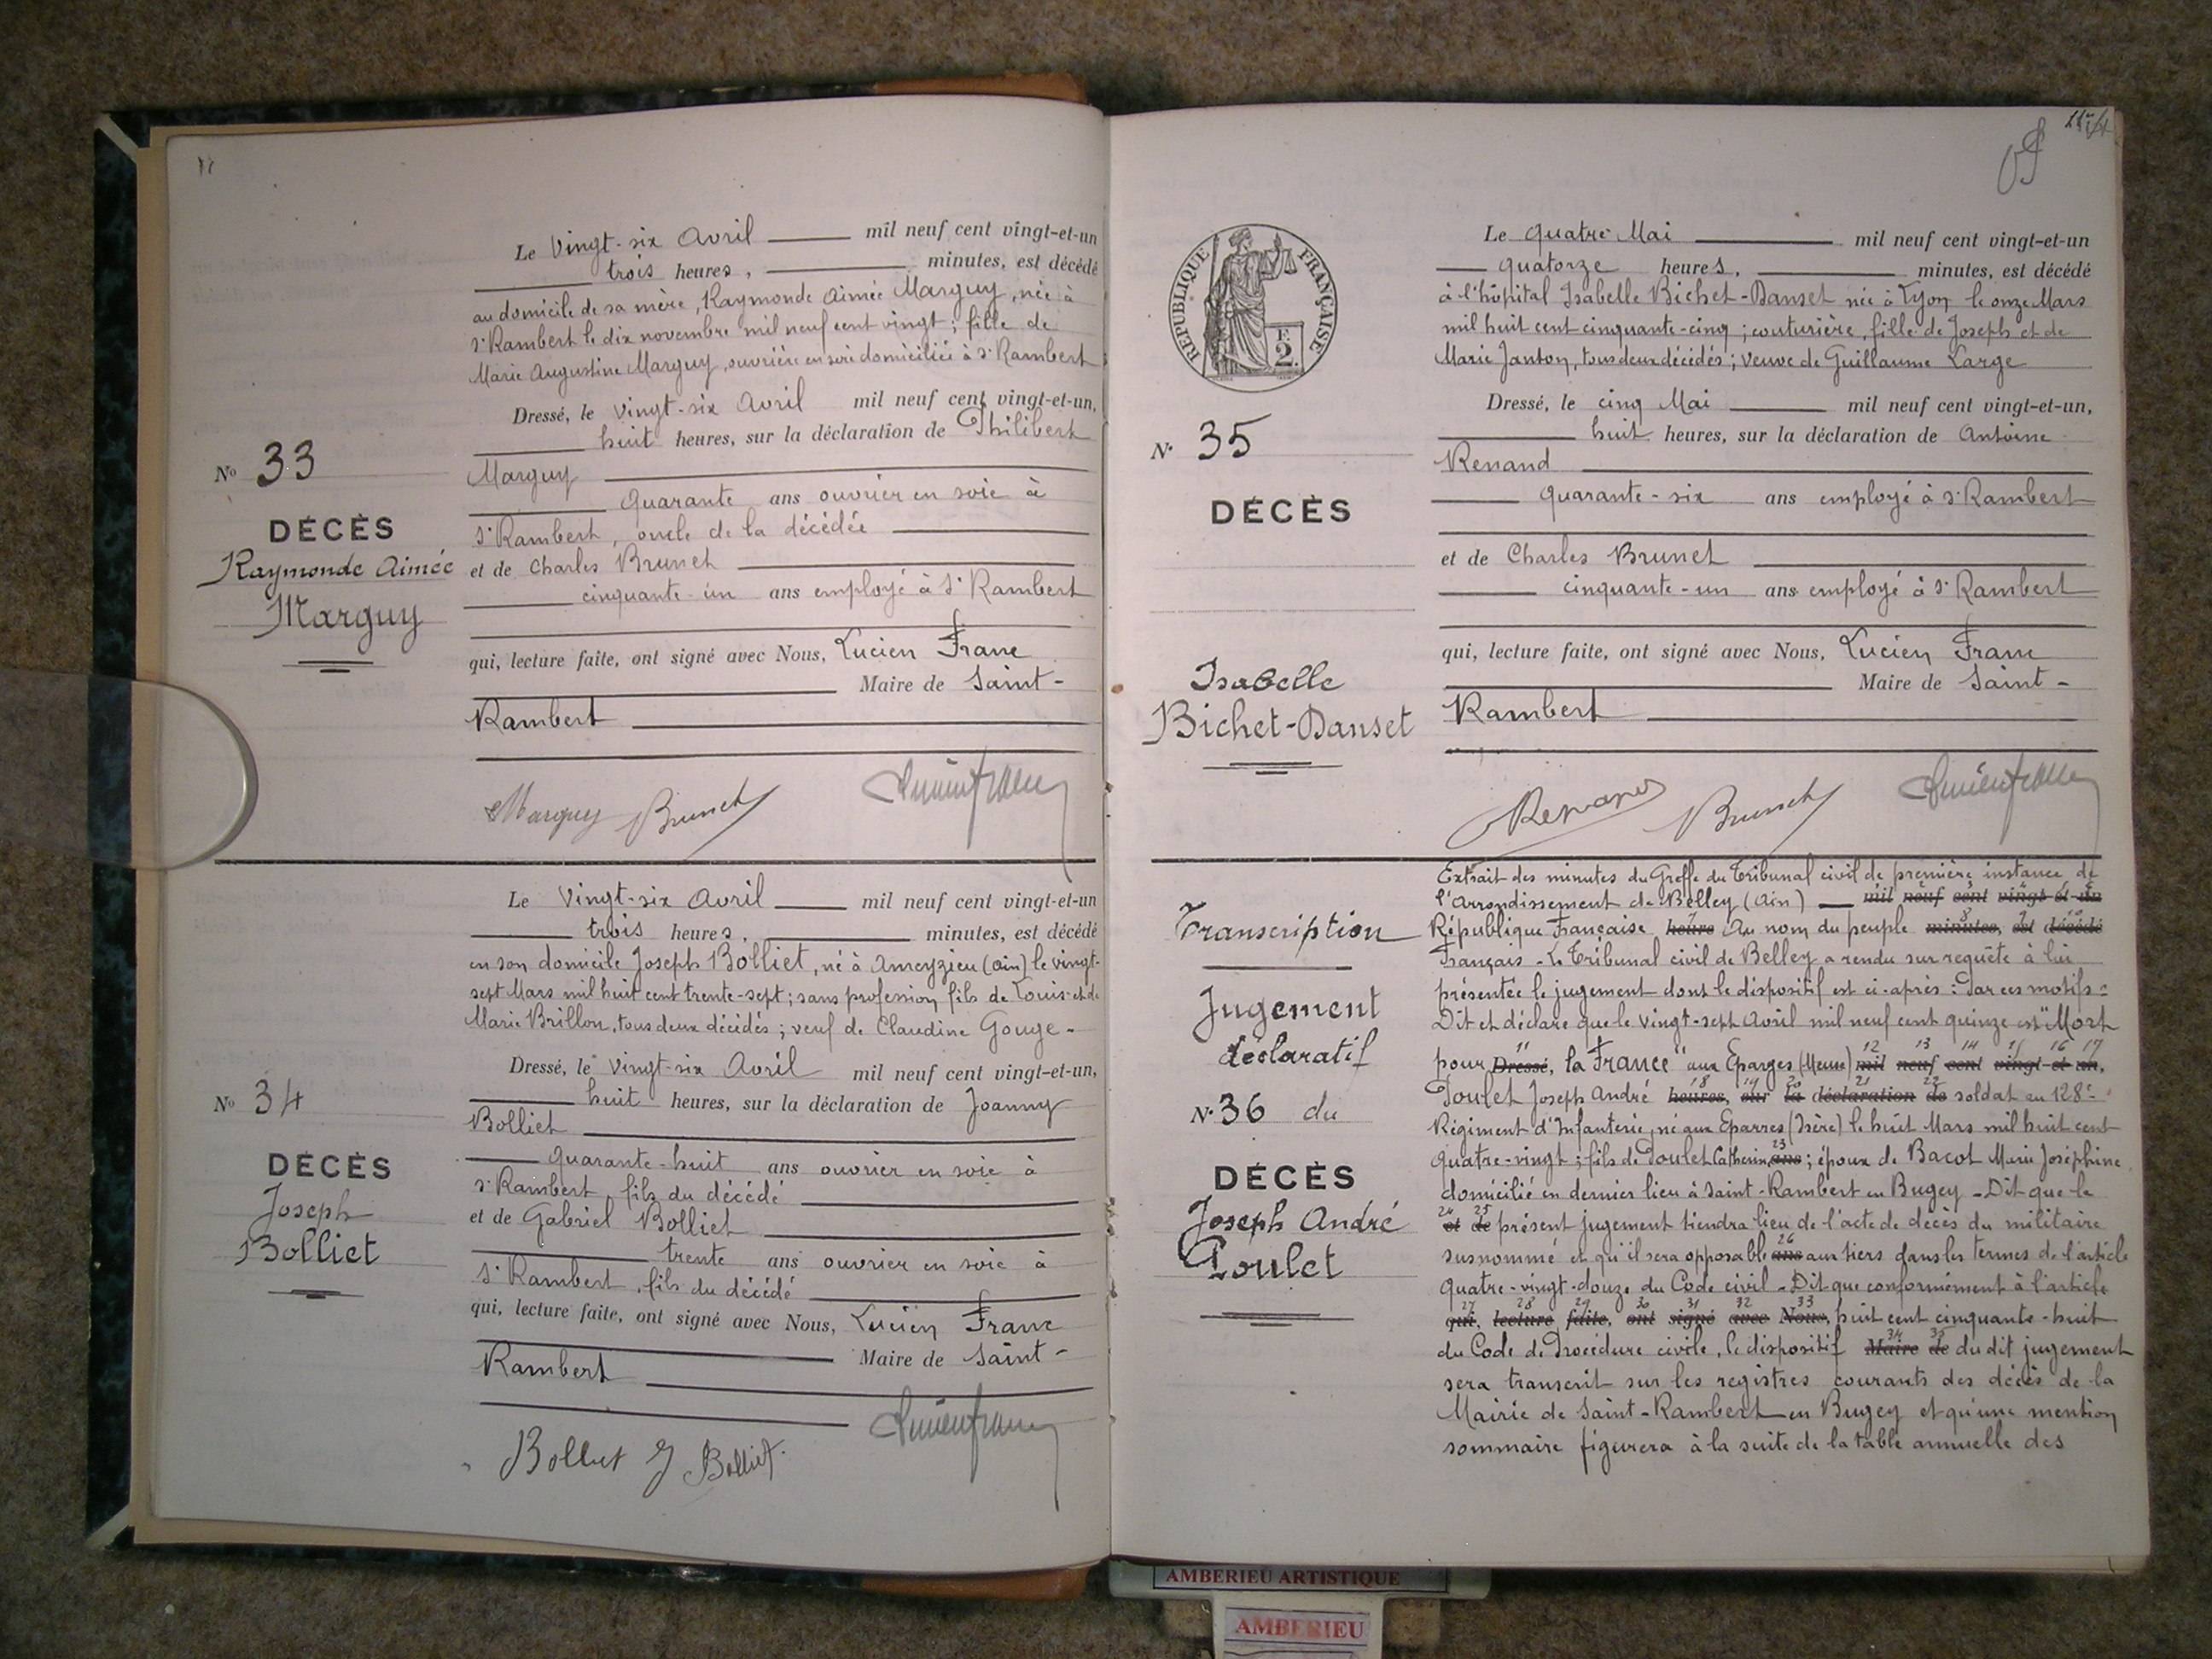 Le vingt-six Avril mil neuf cent vingt-et-un
trois heures, minutes, est décédé
au domicile de sa mère, Raymonde Aimée Marguy, née à
St Rambert le dix novembre mil neuf cent vingt; fille de
Marie Augustine Marguy, ouvrière en soie domiciliée à St Rambert
Dressé, le vingt-six Avril mil neuf cent vingt-et-un,
huit heures, sur la déclaration de Philibert
Marguy
quarante ans ouvrier en soie à
St Rambert, oncle de la décédée
et de Charles Brunet
cinquante-un ans employé à St Rambert
qui, lecture faite, ont signé avec Nous, Lucien Franc
Maire de Saint-
Rambert
Marguy Brunet Lucien Franc
No 33
DÉCÈS
Raymonde Aimée
Marguy
Le vingt-six Avril mil neuf cent vingt-et-un
trois heures, minutes, est décédé
en son domicile Joseph Bolliet, né à Ameyzieu (Ain) le vingt-
sept Mars mil huit cent trente-sept; sans profession, fils de Louis et de
Marie Brillon, tous deux décédés; veuf de Claudine Gouge-
Dressé, le vingt-six Avril mil neuf cent vingt-et-un,
huit heures, sur la déclaration de Joanny
Bolliet
quarante-huit ans ouvrier en soie à
St Rambert, fils du décédé
et de Gabriel Bolliet
trente ans ouvrier en soie à
St Rambert, fils du décédé
qui, lecture faite, ont signé avec Nous, Lucien Franc
Maire de Saint-
Rambert
Bolliet J Bolliet Lucien Franc
No 34
DÉCÈS
Joseph
Bolliet
RÉPUBLIQUE FRANÇAISE
E
2.
Le quatre Mai mil neuf cent vingt-et-un
quatorze heures, minutes, est décédé
à l'hôpital Isabelle Bichet-Danset née à Lyon le onze Mars
mil huit cent cinquante-cinq; couturière, fille de Joseph et de
Marie Janton, tous deux décédés; veuve de Guillaume Large
Dressé, le cinq Mai mil neuf cent vingt-et-un,
huit heures, sur la déclaration de Antoine
Renand
quarante-six ans employé à St Rambert
et de Charles Brunet
cinquante-un ans employé à St Rambert
qui, lecture faite, ont signé avec Nous, Lucien Franc
Maire de Saint-
Rambert
Renand Brunet Lucien Franc
No 35
DÉCÈS
Isabelle
Bichet-Danset
Transcription
Jugement
déclaratif
No 36 du
DÉCÈS
Joseph André
Poulet
Extrait des minutes du Greffe du Tribunal civil de première instance de
l'Arrondissement de Belley (Ain) mil neuf cent vingt-et-un
République Française heure Au nom du peuple minutes, est décédé
Français - Le Tribunal civil de Belley a rendu sur requête à lui
présentée le jugement dont le dispositif est ci-après: Par ces motifs=
Dit et déclare que le vingt-sept Avril mil neuf cent quinze est "Mort
pour Dressé, la France" aux Eparges (Meuse) mil neuf cent vingt-et-un,
Poulet Joseph André heures, sur la déclaration de soldat au 128e
Régiment d'Infanterie, né aux Eparres (Isère) le huit Mars mil huit cent
quatre-vingt; fils de Poulet Catherine ans; époux de Bacot Marie Joséphine
domicilié en dernier lieu à Saint-Rambert en Bugey - Dit que le
et de présent jugement tiendra lieu de l'acte de décès du militaire
susnommé et qu'il sera opposable ans aux tiers dans les termes de l'article
quatre-vingt-douze du Code civil - Dit que conformément à l'article
qui, lecture faite, ont signé avec Nous, huit cent cinquante-huit
du Code de Procédure civile, le dispositif Maire de du dit jugement
sera transcrit sur les registres courants des décès de la
Mairie de Saint-Rambert en Bugey et qu'une mention
sommaire figurera à la suite de la table annuelle des
AMBERIEU ARTISTIQUE
AMBERIEU